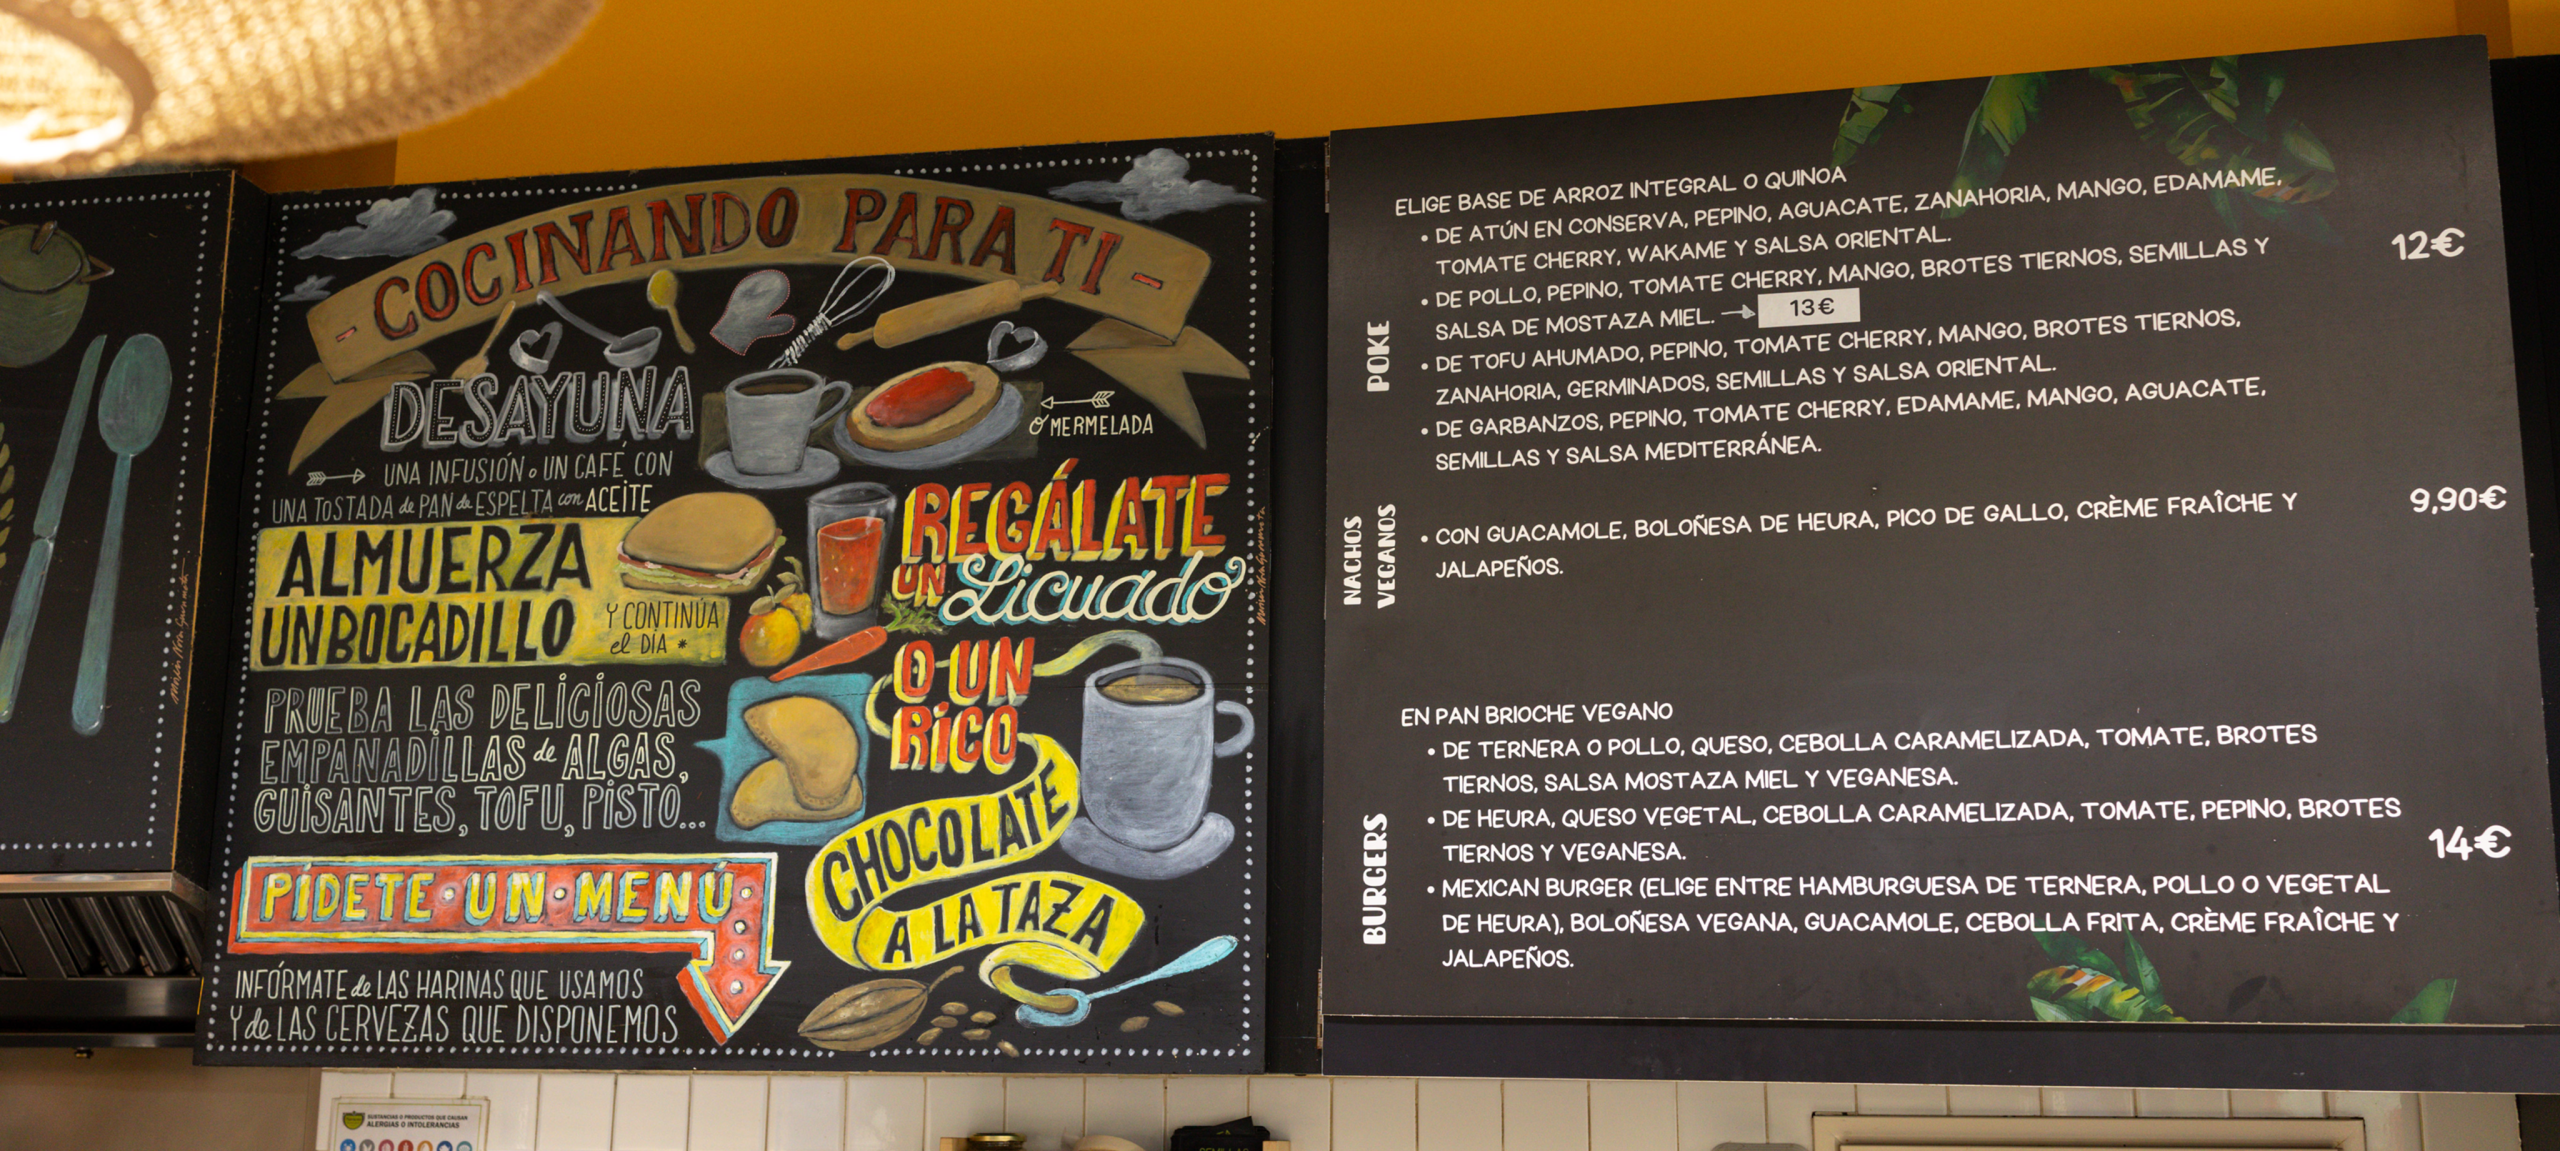 COCINANDO PARA TI
DESAYUNA
Ó MERMELADA
UNA INFUSIÓN o UN CAFÉ CON
UNA TOSTADA de PAN de ESPELTA con ACEITE
ALMUERZA
UN BOCADILLO
Y CONTINÚA
el DÍA *
REGÁLATE
UN Licuado
O UN
RICO
CHOCOLATE
A LA TAZA
PRUEBA LAS DELICIOSAS
EMPANADILLAS de ALGAS,
GUISANTES, TOFU, PISTO...
PÍDETE · UN · MENÚ
INFÓRMATE de LAS HARINAS QUE USAMOS
Y de LAS CERVEZAS QUE DISPONEMOS
POKE
ELIGE BASE DE ARROZ INTEGRAL O QUINOA
• DE ATÚN EN CONSERVA, PEPINO, AGUACATE, ZANAHORIA, MANGO, EDAMAME,
TOMATE CHERRY, WAKAME Y SALSA ORIENTAL.
12€
• DE POLLO, PEPINO, TOMATE CHERRY, MANGO, BROTES TIERNOS, SEMILLAS Y
SALSA DE MOSTAZA MIEL. → 13€
• DE TOFU AHUMADO, PEPINO, TOMATE CHERRY, MANGO, BROTES TIERNOS,
ZANAHORIA, GERMINADOS, SEMILLAS Y SALSA ORIENTAL.
• DE GARBANZOS, PEPINO, TOMATE CHERRY, EDAMAME, MANGO, AGUACATE,
SEMILLAS Y SALSA MEDITERRÁNEA.
NACHOS
VEGANOS
• CON GUACAMOLE, BOLOÑESA DE HEURA, PICO DE GALLO, CRÈME FRAÎCHE Y
JALAPEÑOS.
9,90€
BURGERS
EN PAN BRIOCHE VEGANO
• DE TERNERA O POLLO, QUESO, CEBOLLA CARAMELIZADA, TOMATE, BROTES
TIERNOS, SALSA MOSTAZA MIEL Y VEGANESA.
• DE HEURA, QUESO VEGETAL, CEBOLLA CARAMELIZADA, TOMATE, PEPINO, BROTES
TIERNOS Y VEGANESA.
14€
• MEXICAN BURGER (ELIGE ENTRE HAMBURGUESA DE TERNERA, POLLO O VEGETAL
DE HEURA), BOLOÑESA VEGANA, GUACAMOLE, CEBOLLA FRITA, CRÈME FRAÎCHE Y
JALAPEÑOS.
SUSTANCIAS O PRODUCTOS QUE CAUSAN
ALERGIAS O INTOLERANCIAS